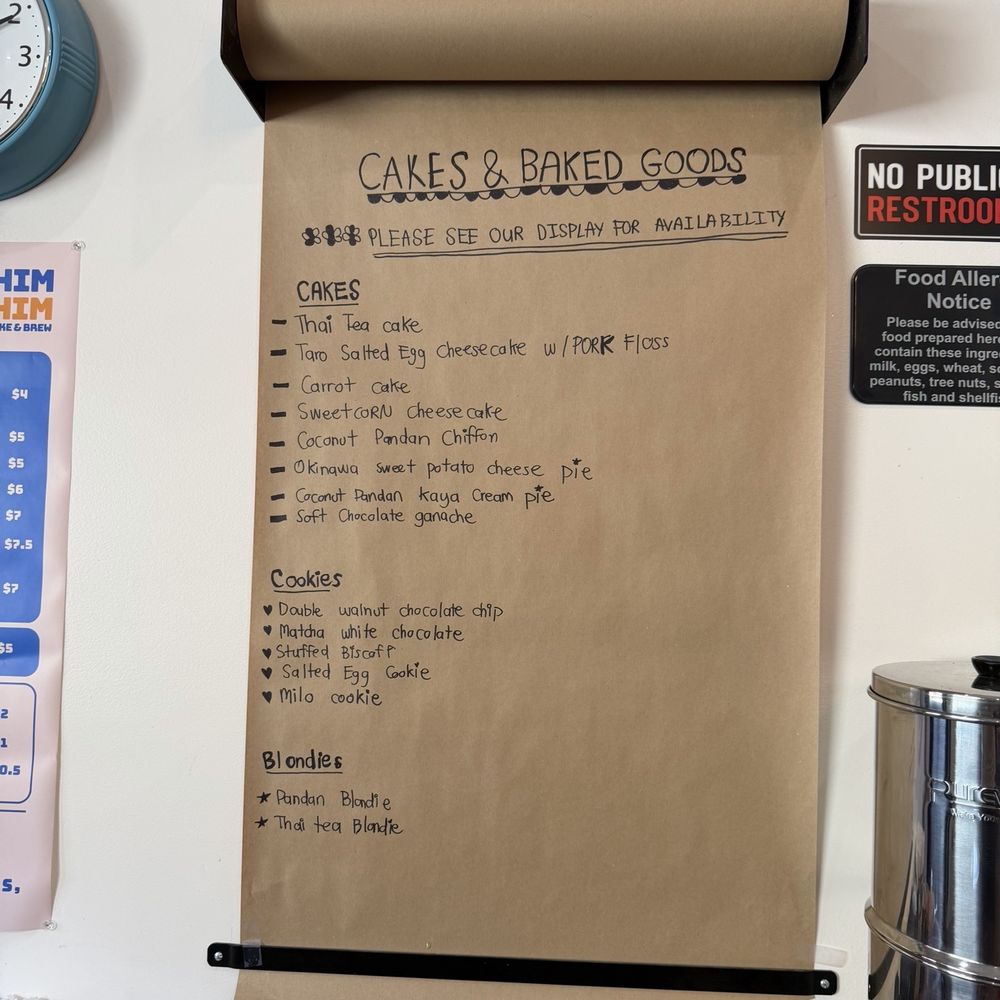 2
3
4
HIM
HIM
KE & BREW
$4
$5
$5
$6
$7
$7.5
$7
$5
2
1
0.5
S,
CAKES & BAKED GOODS
PLEASE SEE OUR DISPLAY FOR AVAILABILITY
CAKES
- Thai Tea cake
- Taro Salted Egg cheesecake w/PORK Floss
- Carrot cake
- SweetCORN cheesecake
- Coconut Pandan Chiffon
- Okinawa sweet potato cheese pie
- Coconut Pandan kaya Cream pie
- Soft Chocolate ganache
Cookies
♥ Double walnut chocolate chip
♥ Matcha white chocolate
♥ Stuffed Biscoff
♥ Salted Egg Cookie
♥ Milo cookie
Blondies
★ Pandan Blondie
★ Thai tea Blondie
NO PUBLIC
RESTROOM
Food Aller
Notice
Please be advised
food prepared here
contain these ingre
milk, eggs, wheat, s
peanuts, tree nuts, s
fish and shellfis